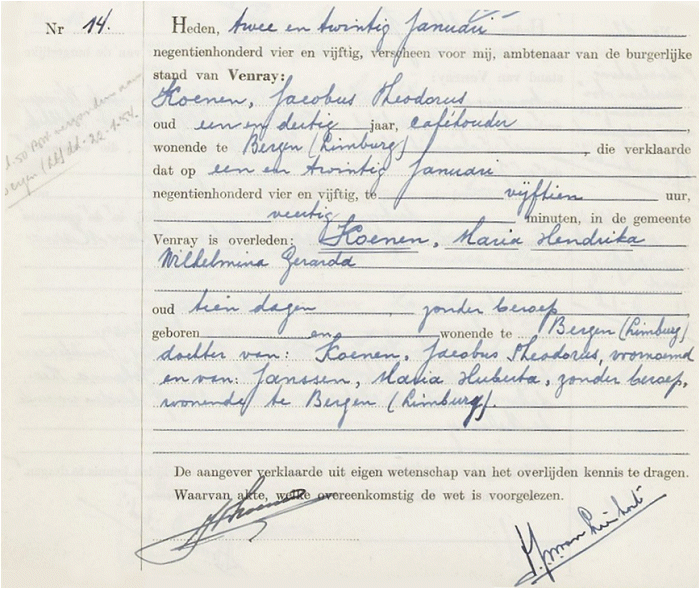 Nr 14. Heden, twee en twintig Januari
negentienhonderd vier en vijftig, verscheen voor mij, ambtenaar van de burgerlijke
stand van Venray:
Koenen, Jacobus Theodorus
oud een en dertig jaar, caféhouder,
wonende te Bergen (Limburg), die verklaarde
dat op een en twintig Januari
negentienhonderd vier en vijftig, te vijftien uur,
veertig minuten, in de gemeente
Venray is overleden: Koenen, Maria Hendrika
Wilhelmina Gerarda
oud tien dagen zonder beroep
geboren en wonende te Bergen (Limburg)
dochter van: Koenen, Jacobus Theodorus, voornoemd
en van: Janssen, Maria Huberta, zonder beroep,
wonende te Bergen (Limburg).
De aangever verklaarde uit eigen wetenschap van het overlijden kennis te dragen.
Waarvan akte, welke overeenkomstig de wet is voorgelezen.